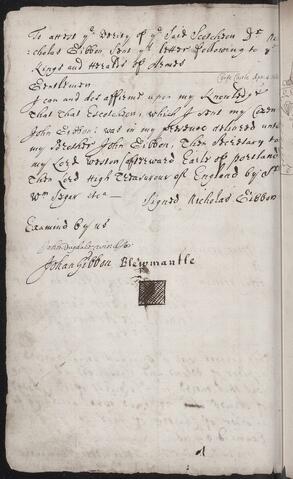 To attest ye verity of ye said Scotcheon Dr Ni-
cholas Gibbon sent ye letter following to ye
Kings and Heralds of Armes
Corfe Castle Apr. 4
Gentlemen
I can and doe affirme upon my Knowledge
That That Escotcheon, which I sent my Cozen
John Gibbon: was in my presence delivered unto
my Brother John Gibbon, Then Secretary to
my Lord Weston afterward Earle of portland
Then Lord High Treasurour of England by Sr
Wm Segar etca
Signed Nicholas Gibbon
Examind by us
John Dugdale Windsor
Johan Gibbon Blewmantle